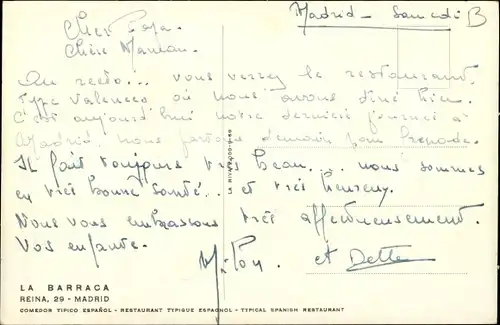 Madrid - Samedi B
Cher Papa
Chère Maman.
Au recto... vous verrez le restaurant
Type Valencee où nous avons diné hier.
C'est aujourd'hui notre dernière journée à
Madrid. nous partons demain pour Grenade.
Il fait toujours très beau... nous sommes
en très bonne santé... et très heureux.
Nous vous embrassons très affectueusement.
Vos enfants.
et Dette
LA BARRACA
REINA, 29 - MADRID
COMEDOR TIPICO ESPAÑOL - RESTAURANT TYPIQUE ESPAGNOL - TYPICAL SPANISH RESTAURANT